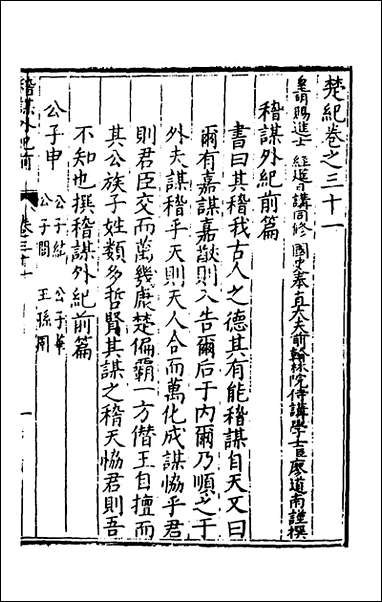 楚紀卷之三十一
皇明賜進士 經筵日講同修 國史奉直大夫前翰林院侍講學士臣廖道南謹撰
稽謀外紀前篇
書曰其稽我古人之德其有能稽謀自天又曰
爾有嘉謀嘉猷則入告爾后于内爾乃順之于
外夫謀稽乎天則天人合而萬化成謀恊乎君
則君臣交而萬幾康楚偏霸一方僭王自擅而
其公族子姓類多哲賢其謀之稽天恊君則吾
不知也撰稽謀外紀前篇
公子申 公子結 公子
公子閭 王孫圉
稽謀外紀前 卷三十一 一